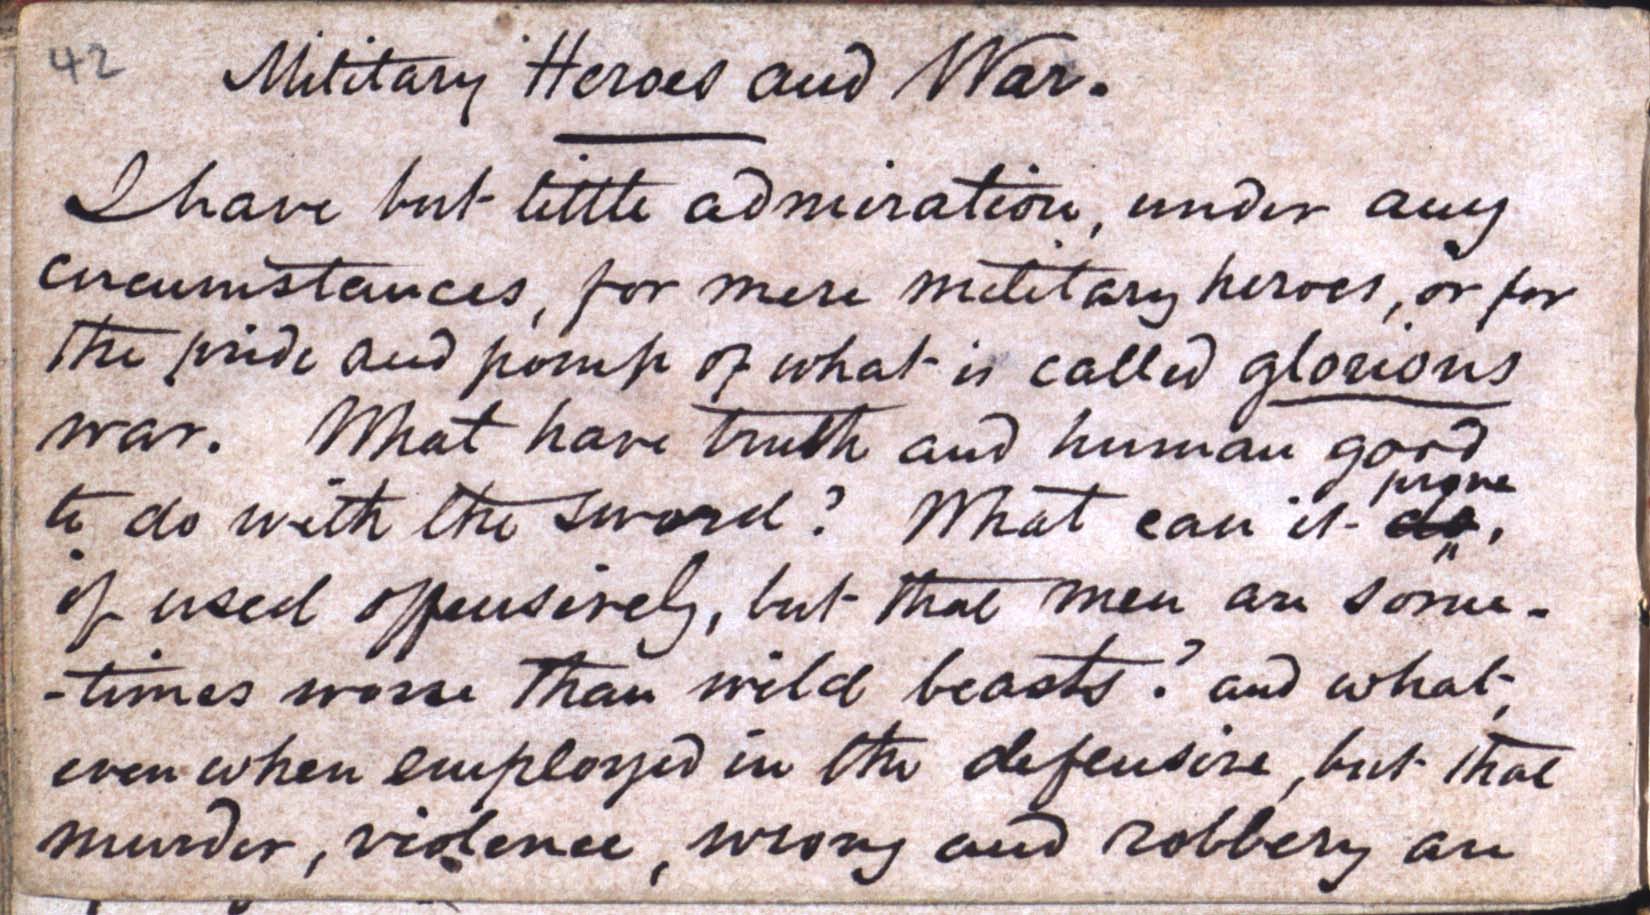 42
Military Heroes and War.
I have but little admiration, under any
circumstances, for mere military heroes, or for
the pride and pomp of what is called glorious
war. What have truth and human good
prove
to do with the sword? What can it do,
if used offensively, but that men are some-
-times worse than wild beasts? and what,
even when employed in the defensive, but that
murder, violence, wrong and robbery are